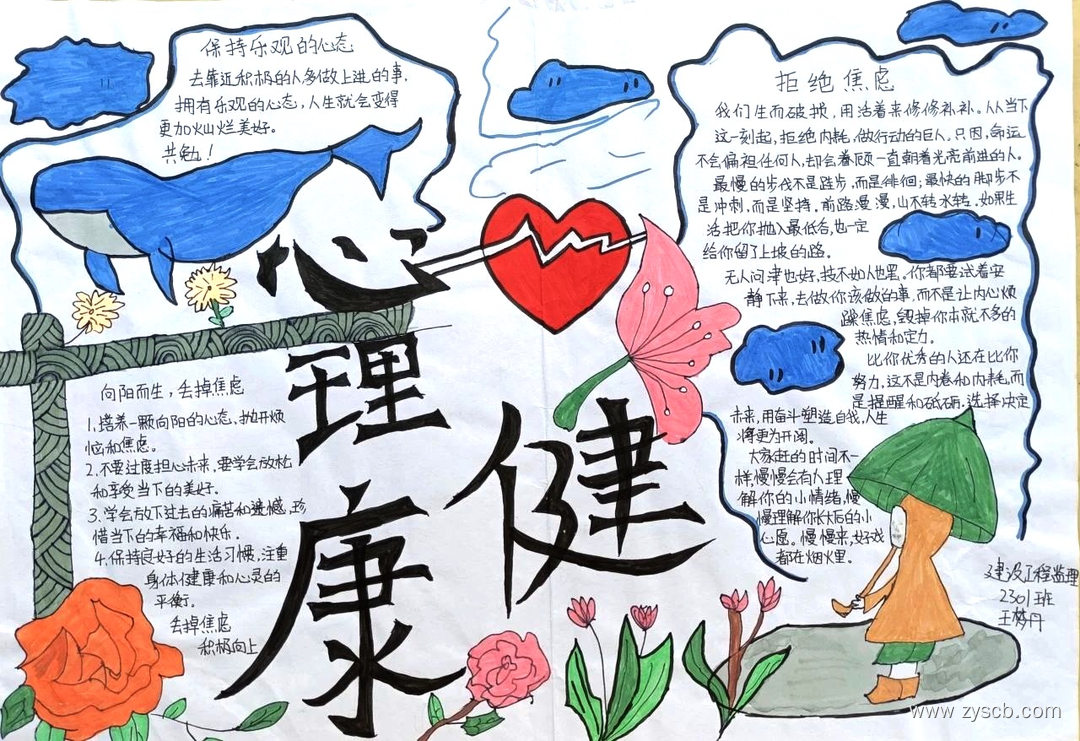 保持乐观的心态
去靠近积极的人多做上进的事,
拥有乐观的心态,人生就会变得
更加灿烂美好。
共勉!
心理健康
向阳而生,丢掉焦虑
1.培养一颗向阳的心态,抛开烦
恼和焦虑。
2.不要过度担心未来,要学会放松
和享受当下的美好。
3.学会放下过去的痛苦和遗憾,珍
惜当下的幸福和快乐.
4.保持良好的生活习惯,注重
身体健康和心灵的
平衡.
丢掉焦虑
积极向上
拒绝焦虑
我们生而破损,用活着来修修补补。从当下
这一刻起,拒绝内耗,做行动的巨人.只因,命运
不会偏袒任何人,却会眷顾一直朝着光亮前进的人。
最慢的步伐不是跬步,而是徘徊;最快的脚步不
是冲刺,而是坚持,前路漫漫,山不转水转,如果生
活把你抛入最低谷,也一定
给你留了上坡的路。
无人问津也好,技不如人也罢。你都要试着安
静下来,去做你该做的事,而不是让内心烦
躁焦虑,毁掉你本就不多的
热情和定力。
比你优秀的人还在比你
努力,这不是内卷和内耗,而
是提醒和砥砺.选择决定
未来,用奋斗塑造自我,人生
将更为开阔。
大家赶的时间不一
样,慢慢会有人理
解你的小情绪,慢
慢理解你长大后的小
心愿。慢慢来,好戏
都在烟火里。
建设工程监理
2301班
王梦丹
www.zyscb.com